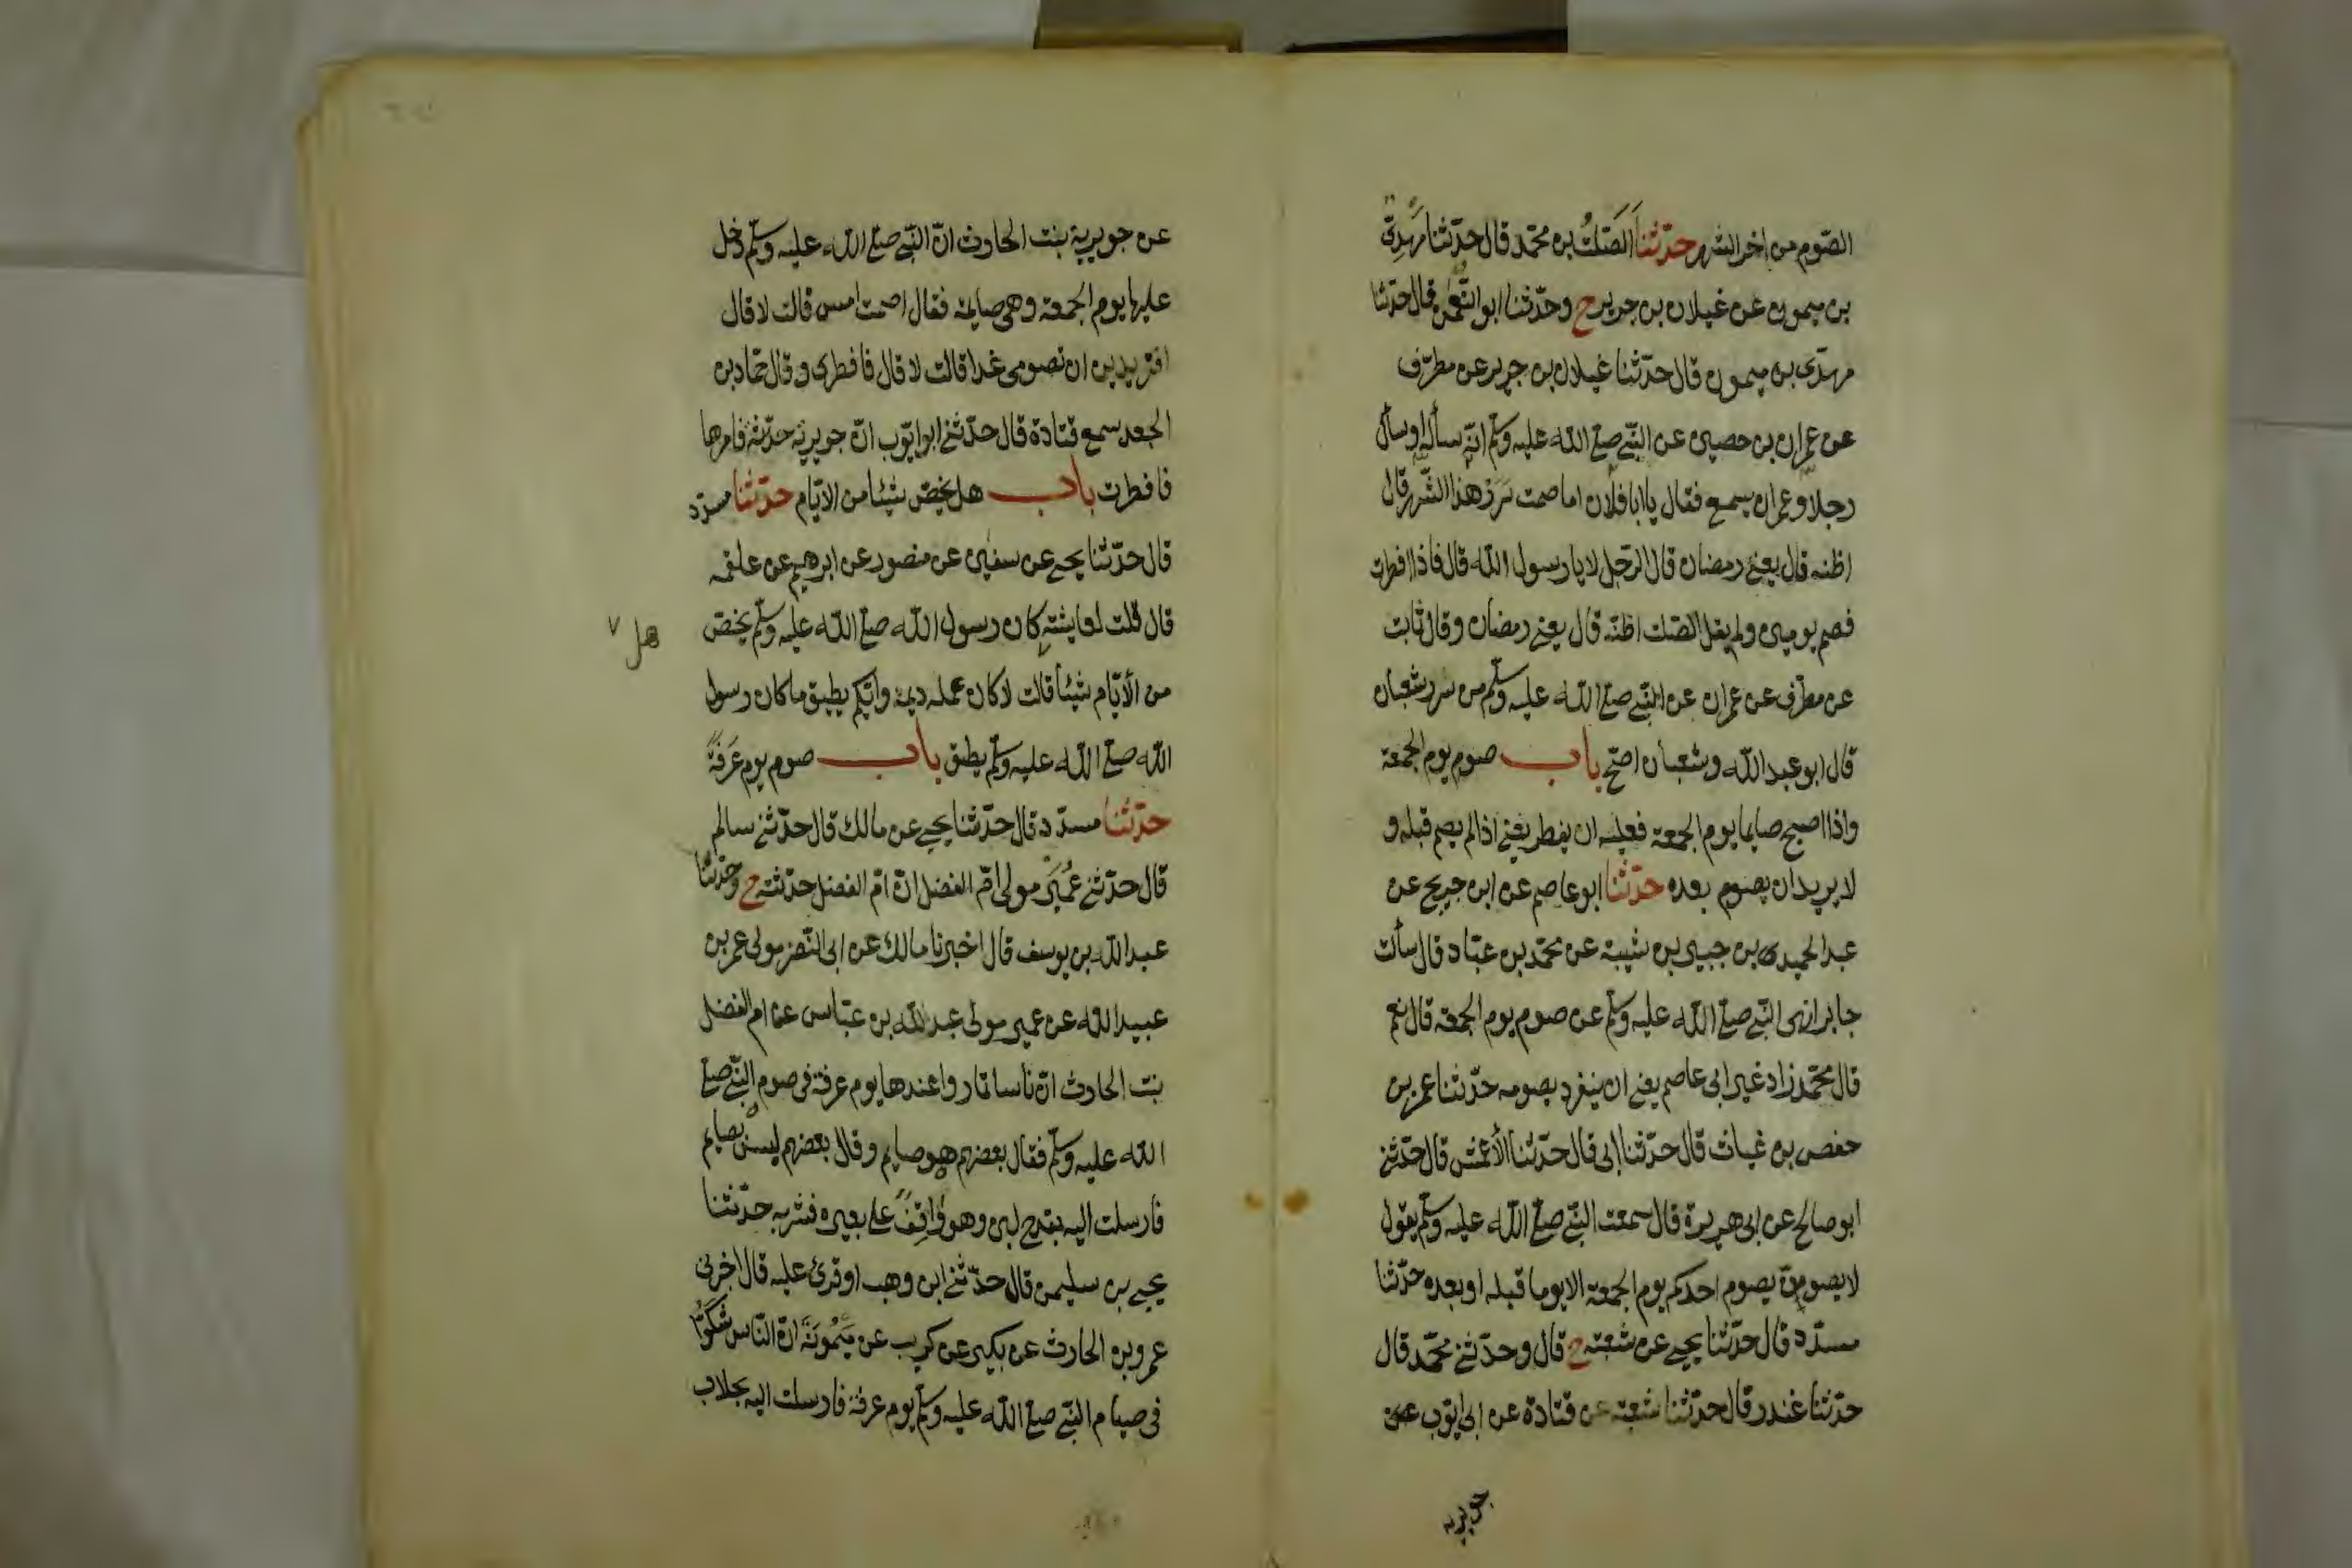 الصّوم من اخر الشهر حدّثنا الصَّلْتُ بن محمّد قال حدّثنا مَهْدِيُّ
بن ميمون عن غيلان بن جرير ح وحدّثنا ابو النُّعْمٰن قال حدّثنا
مهدّى بن ميمون قال حدّثنا غيلان بن جرير عن مطرّف
عن عمران بن حصين عن النّبى صلى الله عليه وسلّم انّه سأله او سأل
رجلا وعمران يسمع فقال يا ابا فلان اما صمت سَرَرَ هذا الشّهر قال
اظنه قال يعنى رمضان قال الرّجل لا يا رسول الله قال فاذا افطرت
فصم يومين ولم يقل الصّلت اظنّه قال يعنى رمضان وقال ثابت
عن مطرّف عن عمران عن النّبى صلى الله عليه وسلّم من سرر شعبان
قال ابو عبد الله وشعبان اصحّ باب صوم يوم الجمعة
واذا اصبح صايما يوم الجمعة فعليه ان يفطر يعنى اذا لم يصم قبله و
لا يريد ان يصوم بعده حدّثنا ابو عاصم عن ابن جريج عن
عبد الحميد بن جبير بن شيبة عن محمّد بن عبّاد قال سألت
جابرا نهى النّبى صلى الله عليه وسلّم عن صوم يوم الجمعة قال نعم
قال محمّد زاد غير ابى عاصم يعنى ان ينفرد بصومه حدّثنا عمر بن
حفص بن غياث قال حدّثنا ابى قال حدّثنا الأعمش قال حدّثنى
ابو صالح عن ابى هريرة قال سمعت النّبى صلى الله عليه وسلّم يقول
لا يصومنّ يصوم احدكم يوم الجمعة الا يوما قبله او بعده حدّثنا
مسدّد قال حدّثنا يحيى عن شعبة ح قال وحدّثنى محمّد قال
حدّثنا غندر قال حدّثنا شعبة عن قتادة عن ابى ايّوب عن
جويريه
عن جويرية بنت الحارث انّ النّبى صلى الله عليه وسلّم دخل
عليها يوم الجمعة وهى صايمة فقال اصمت امس قالت لا قال
افتريدين ان تصومى غدا قالت لا قال فافطرى وقال حمّاد بن
الجعد سمع قتادة قال حدّثنى ابو ايّوب انّ جويرية حدّثته فامرها
فافطرت باب هل يخصّ شيئا من الايّام حدّثنا مسدّد
قال حدّثنا يحيى عن سفين عن منصور عن ابرهيم عن علقمه
قال قلت لعايشة كان رسول الله صلى الله عليه وسلّم يخصّ
هل
من الأيّام شيئا قالت لا كان عمله ديمة وايّكم يطيق ما كان رسول
الله صلى الله عليه وسلّم يطيق باب صوم يوم عَرَفَةَ
حدّثنا مسدّد قال حدّثنا يحيى عن مالك قال حدّثنى سالم
قال حدّثنى عُمَيْرٌ مولى امّ الفضل انّ امّ الفضل حدّثته ح وحدّثنا
عبد الله بن يوسف قال اخبرنا مالك عن ابى النّضر مولى عمر بن
عبيد الله عن عمير مولى عبد الله بن عبّاس عن ام الفضل
بنت الحارث انّ ناسا تماروا عندها يوم عرفة فى صوم النّبى صلى
الله عليه وسلّم فقال بعضهم هو صايم وقال بعضهم ليس بصايم
فارسلت اليه بقدح لبن وهو وَاقِفٌ على بعيره فشربه حدّثنا
يحيى بن سليمن قال حدّثنى ابن وهب او قرئ عليه قال اخبرنى
عمرو بن الحارث عن بكير عن كريب عن مَيْمُونَةَ انّ النّاس شَكُّوا
فى صيام النّبى صلى الله عليه وسلّم يوم عرفة فارسلت اليه بحلاب